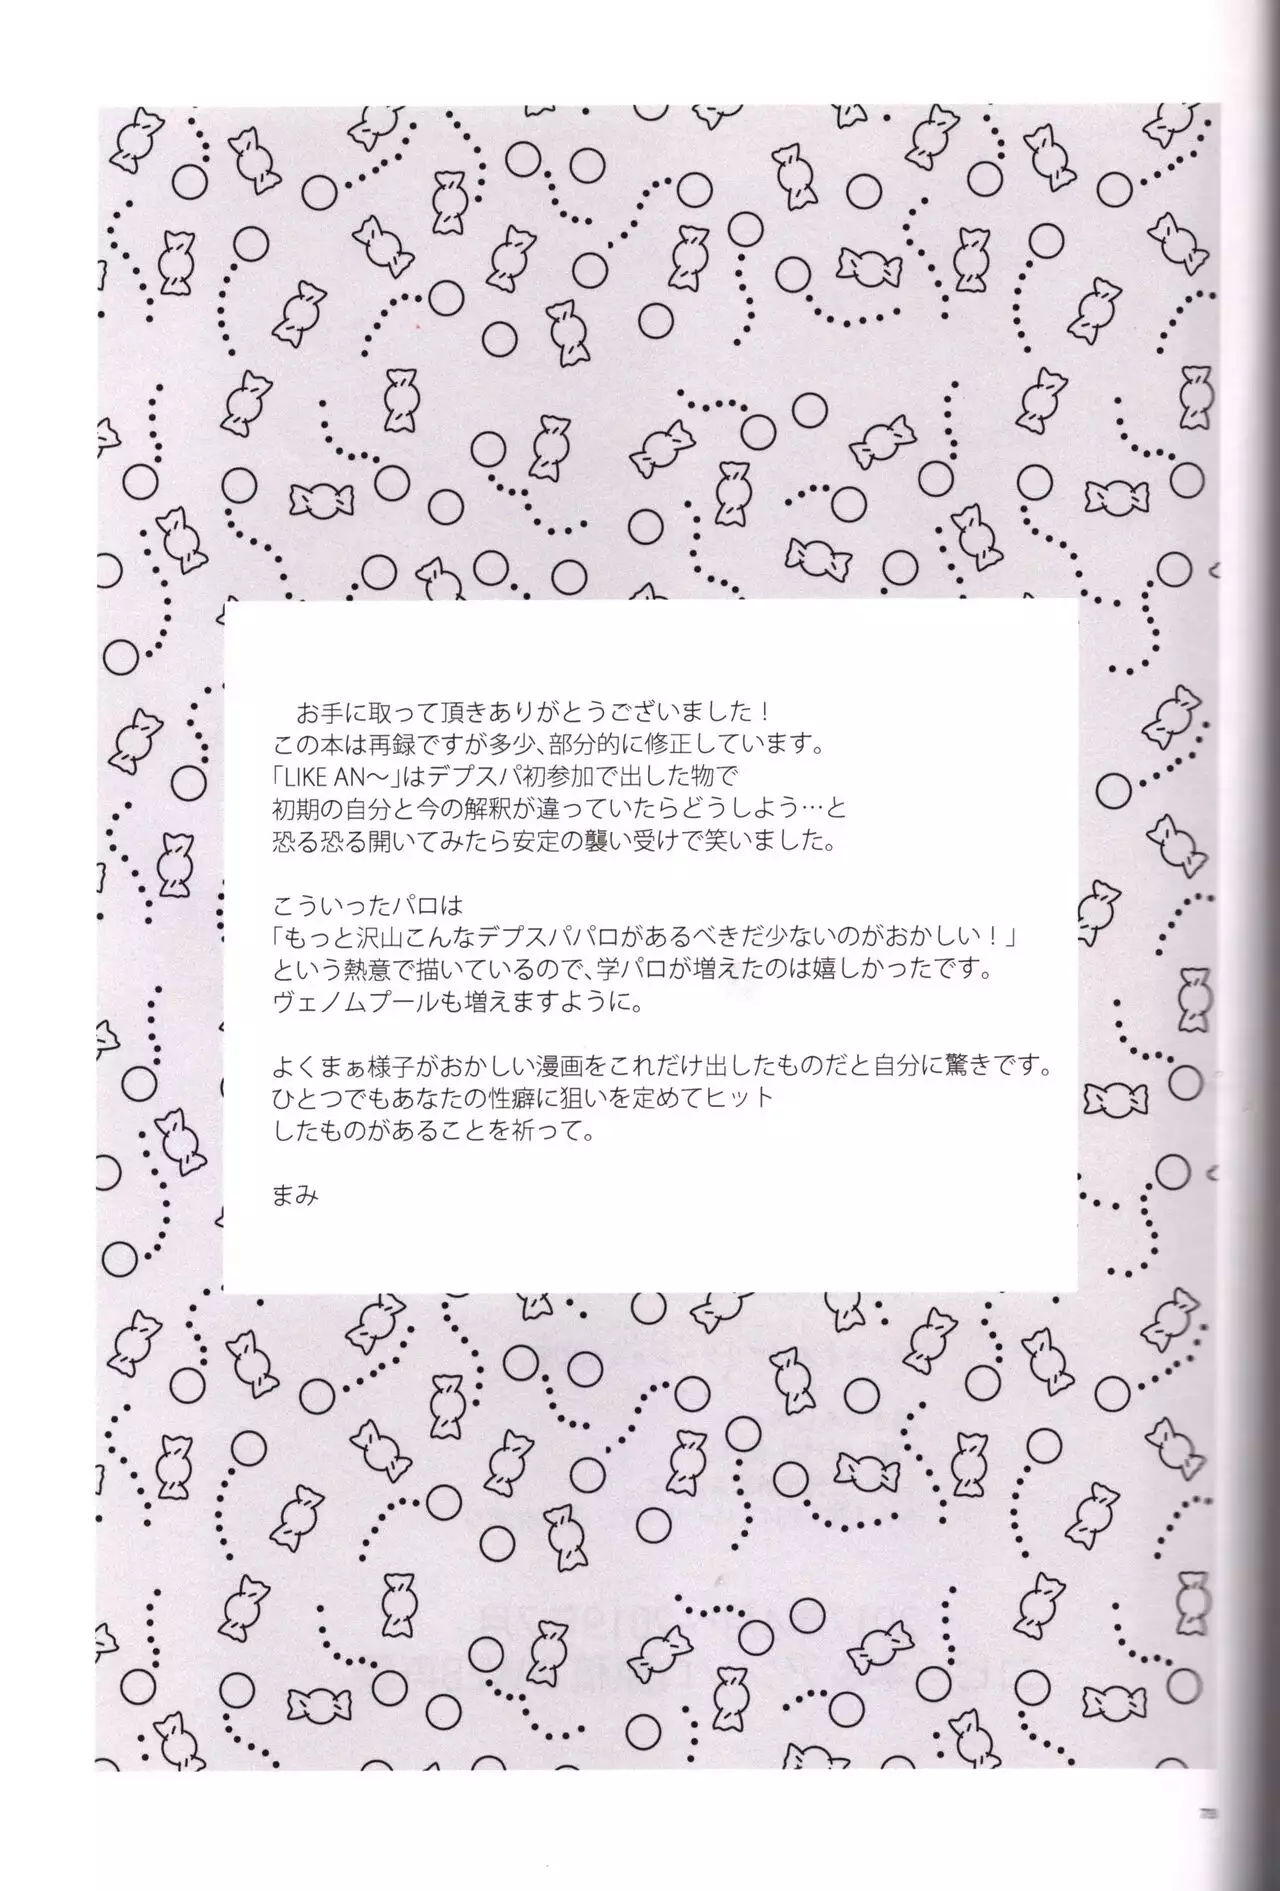 お手に取って頂きありがとうございました！
この本は再録ですが多少、部分的に修正しています。
「LIKE AN～」はデプスパ初参加で出した物で
初期の自分と今の解釈が違っていたらどうしよう…と
恐る恐る開いてみたら安定の襲い受けで笑いました。
こういったパロは
「もっと沢山こんなデプスパパロがあるべきだ少ないのがおかしい！」
という熱意で描いているので、学パロが増えたのは嬉しかったです。
ヴェノムプールも増えますように。
よくまぁ様子がおかしい漫画をこれだけ出したものだと自分に驚きです。
ひとつでもあなたの性癖に狙いを定めてヒット
したものがあることを祈って。
まみ